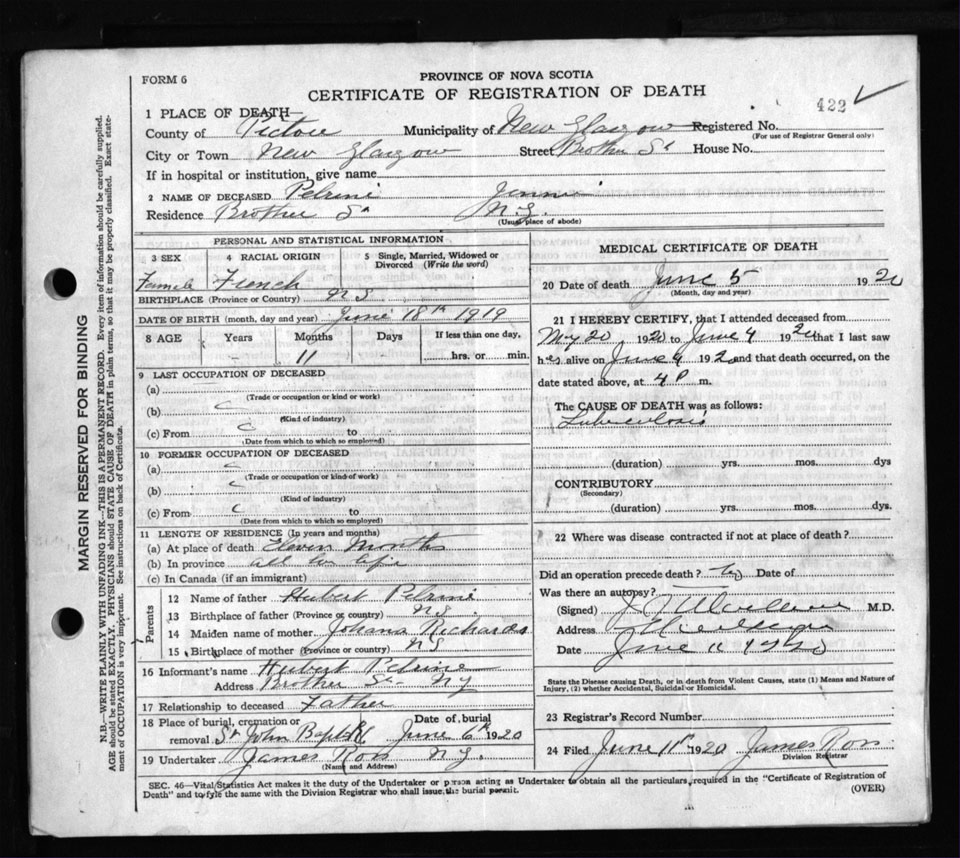 PROVINCE OF NOVA SCOTIA
FORM 6
CERTIFICATE OF REGISTRATION OF DEATH
422
1 PLACE OF DEATH
County of Pictou Municipality of New Glasgow Registered No.
(For use of Registrar General only)
City or Town New Glasgow Street Brother St House No.
If in hospital or institution, give name
2 NAME OF DECEASED Pelrine Jennie
Residence Brother St N.G.
(Usual place of abode)
PERSONAL AND STATISTICAL INFORMATION
3 SEX 4 RACIAL ORIGIN 5 Single, Married, Widowed or Divorced (Write the word)
Female French
BIRTHPLACE (Province or Country) N S
DATE OF BIRTH (month, day and year) June 18th 1919
8 AGE Years Months Days If less than one day,
- 11 hrs. or min.
9 LAST OCCUPATION OF DECEASED
(a)
(Trade or occupation or kind of work)
(b)
(Kind of industry)
(c) From to
(Date from which to which so employed)
10 FORMER OCCUPATION OF DECEASED
(a)
(Trade or occupation or kind of work)
(b)
(Kind of industry)
(c) From to
(Date from which to which so employed)
11 LENGTH OF RESIDENCE (In years and months)
(a) At place of death Eleven Months
(b) In province all her life
(c) In Canada (if an immigrant)
Parents
12 Name of father Hubert Pelrine
13 Birthplace of father (Province or country) NS
14 Maiden name of mother Johana Richards
15 Birthplace of mother (Province or country) NS
16 Informant's name Hubert Pelrine
Address Brother St N G
17 Relationship to deceased Father
18 Place of burial, cremation or removal St John Baptist Date of burial June 6th 1920
19 Undertaker James Ross N.G.
(Name and Address)
MEDICAL CERTIFICATE OF DEATH
20 Date of death June 5 1920
(Month, day and year)
21 I HEREBY CERTIFY, that I attended deceased from
May 20 1920 to June 4 1920 that I last saw
her alive on June 4 1920 and that death occurred, on the
date stated above, at 4 P m.
The CAUSE OF DEATH was as follows:
Tuberculosis
(duration) yrs. mos. dys
CONTRIBUTORY
(Secondary)
(duration) yrs. mos. dys.
22 Where was disease contracted if not at place of death?
Did an operation precede death? Date of
Was there an autopsy?
(Signed) M.D.
Address
Date June 11 1920
State the Disease causing Death, or in death from Violent Causes, state (1) Means and Nature of
Injury, (2) whether Accidental, Suicidal or Homicidal.
23 Registrar's Record Number
24 Filed June 11th 1920 James Ross
Division Registrar
SEC. 46—Vital Statistics Act makes it the duty of the Undertaker or person acting as Undertaker to obtain all the particulars required in the "Certificate of Registration of
Death" and to fyle the same with the Division Registrar who shall issue the burial permit.
(OVER)
MARGIN RESERVED FOR BINDING
N.B.—WRITE PLAINLY WITH UNFADING INK—THIS IS A PERMANENT RECORD. Every item of information should be carefully supplied.
AGE should be stated EXACTLY. PHYSICIANS should STATE CAUSE OF DEATH in plain terms, so that it may be properly classified. Exact state-
ment of OCCUPATION is very important. See instructions on back of Certificate.